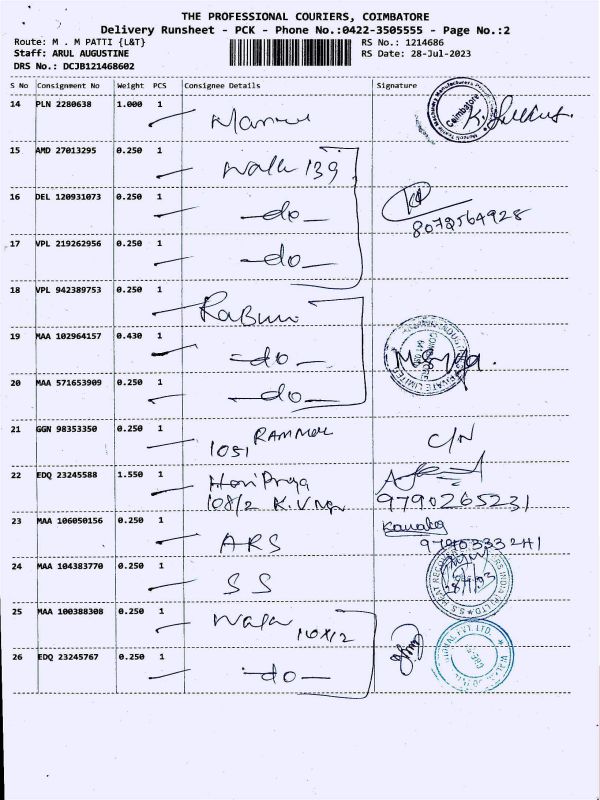 THE PROFESSIONAL COURIERS, COIMBATORE
Delivery Runsheet - PCK - Phone No.:0422-3505555 - Page No.:2
Route: M . M PATTI {L&T} RS No.: 1214686
Staff: ARUL AUGUSTINE RS Date: 28-Jul-2023
DRS No.: DCJB121468602
S No Consignment No Weight PCS Consignee Details Signature
14 PLN 2280638 1.000 1
Coimbatore
15 AMD 27013295 0.250 1 139
16 DEL 120931073 0.250 1 -do-
17 VPL 219262956 0.250 1 -do-
18 VPL 942389753 0.250 1
19 MAA 102964157 0.430 1 -do-
20 MAA 571653909 0.250 1 -do-
21 GGN 98353350 0.250 1 C/N
1051
22 EDQ 23245588 1.550 1 Hari Priya
108/2 K.V 9790265231
23 MAA 106050156 0.250 1 ARS
24 MAA 104383770 0.250 1 SS
25 MAA 100388308 0.250 1
26 EDQ 23245767 0.250 1 -do-